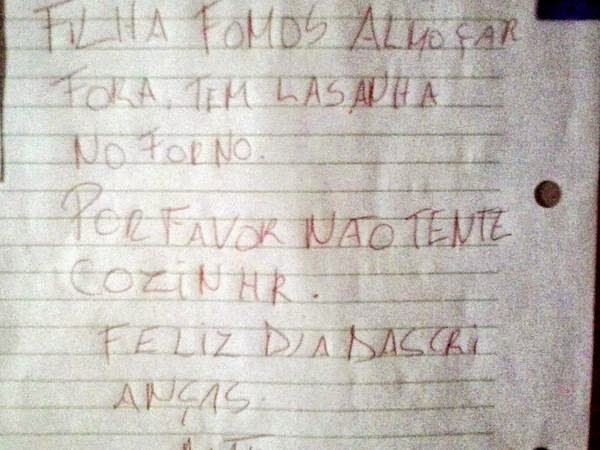 FILHA FOMOS ALMOÇAR
FORA. TEM LASANHA
NO FORNO.
POR FAVOR NÃO TENTE
COZINHR.
FELIZ DIA DAS CRI
ANÇAS.